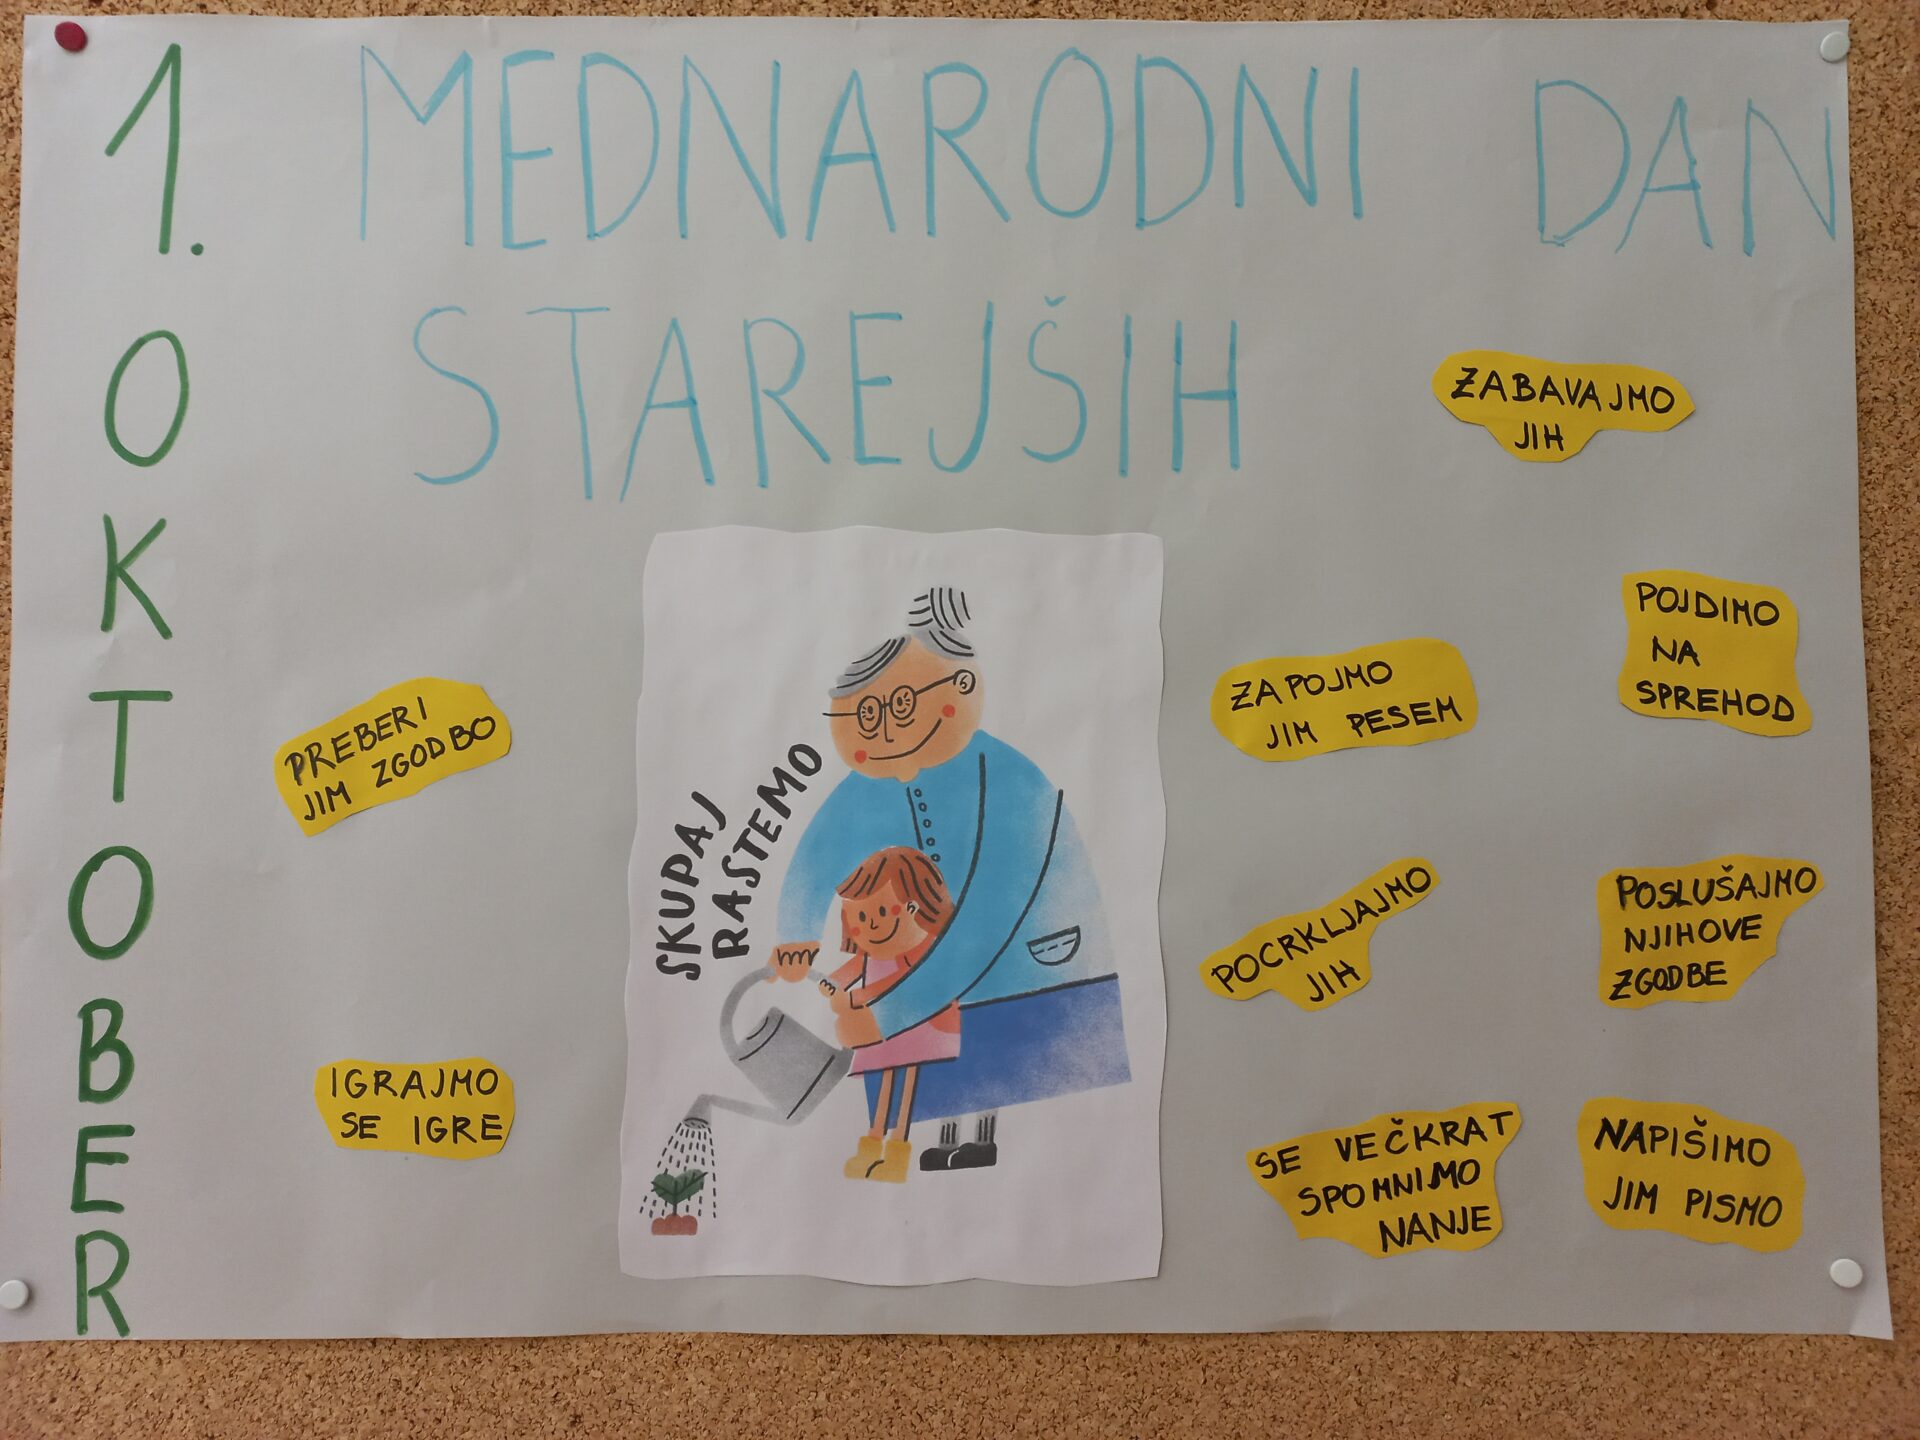 1. OKTOBER
MEDNARODNI DAN
STAREJŠIH
ZABAVAJMO
JIH
POJDIMO
NA
SPREHOD
ZAPOJMO
JIM PESEM
PREBERI
JIM ZGODBO
SKUPAJ
RASTEMO
POCRKLJAJMO
JIH
POSLUŠAJMO
NJIHOVE
ZGODBE
IGRAJMO
SE IGRE
SE VEČKRAT
SPOMNIMO
NANJE
NAPIŠIMO
JIM PISMO